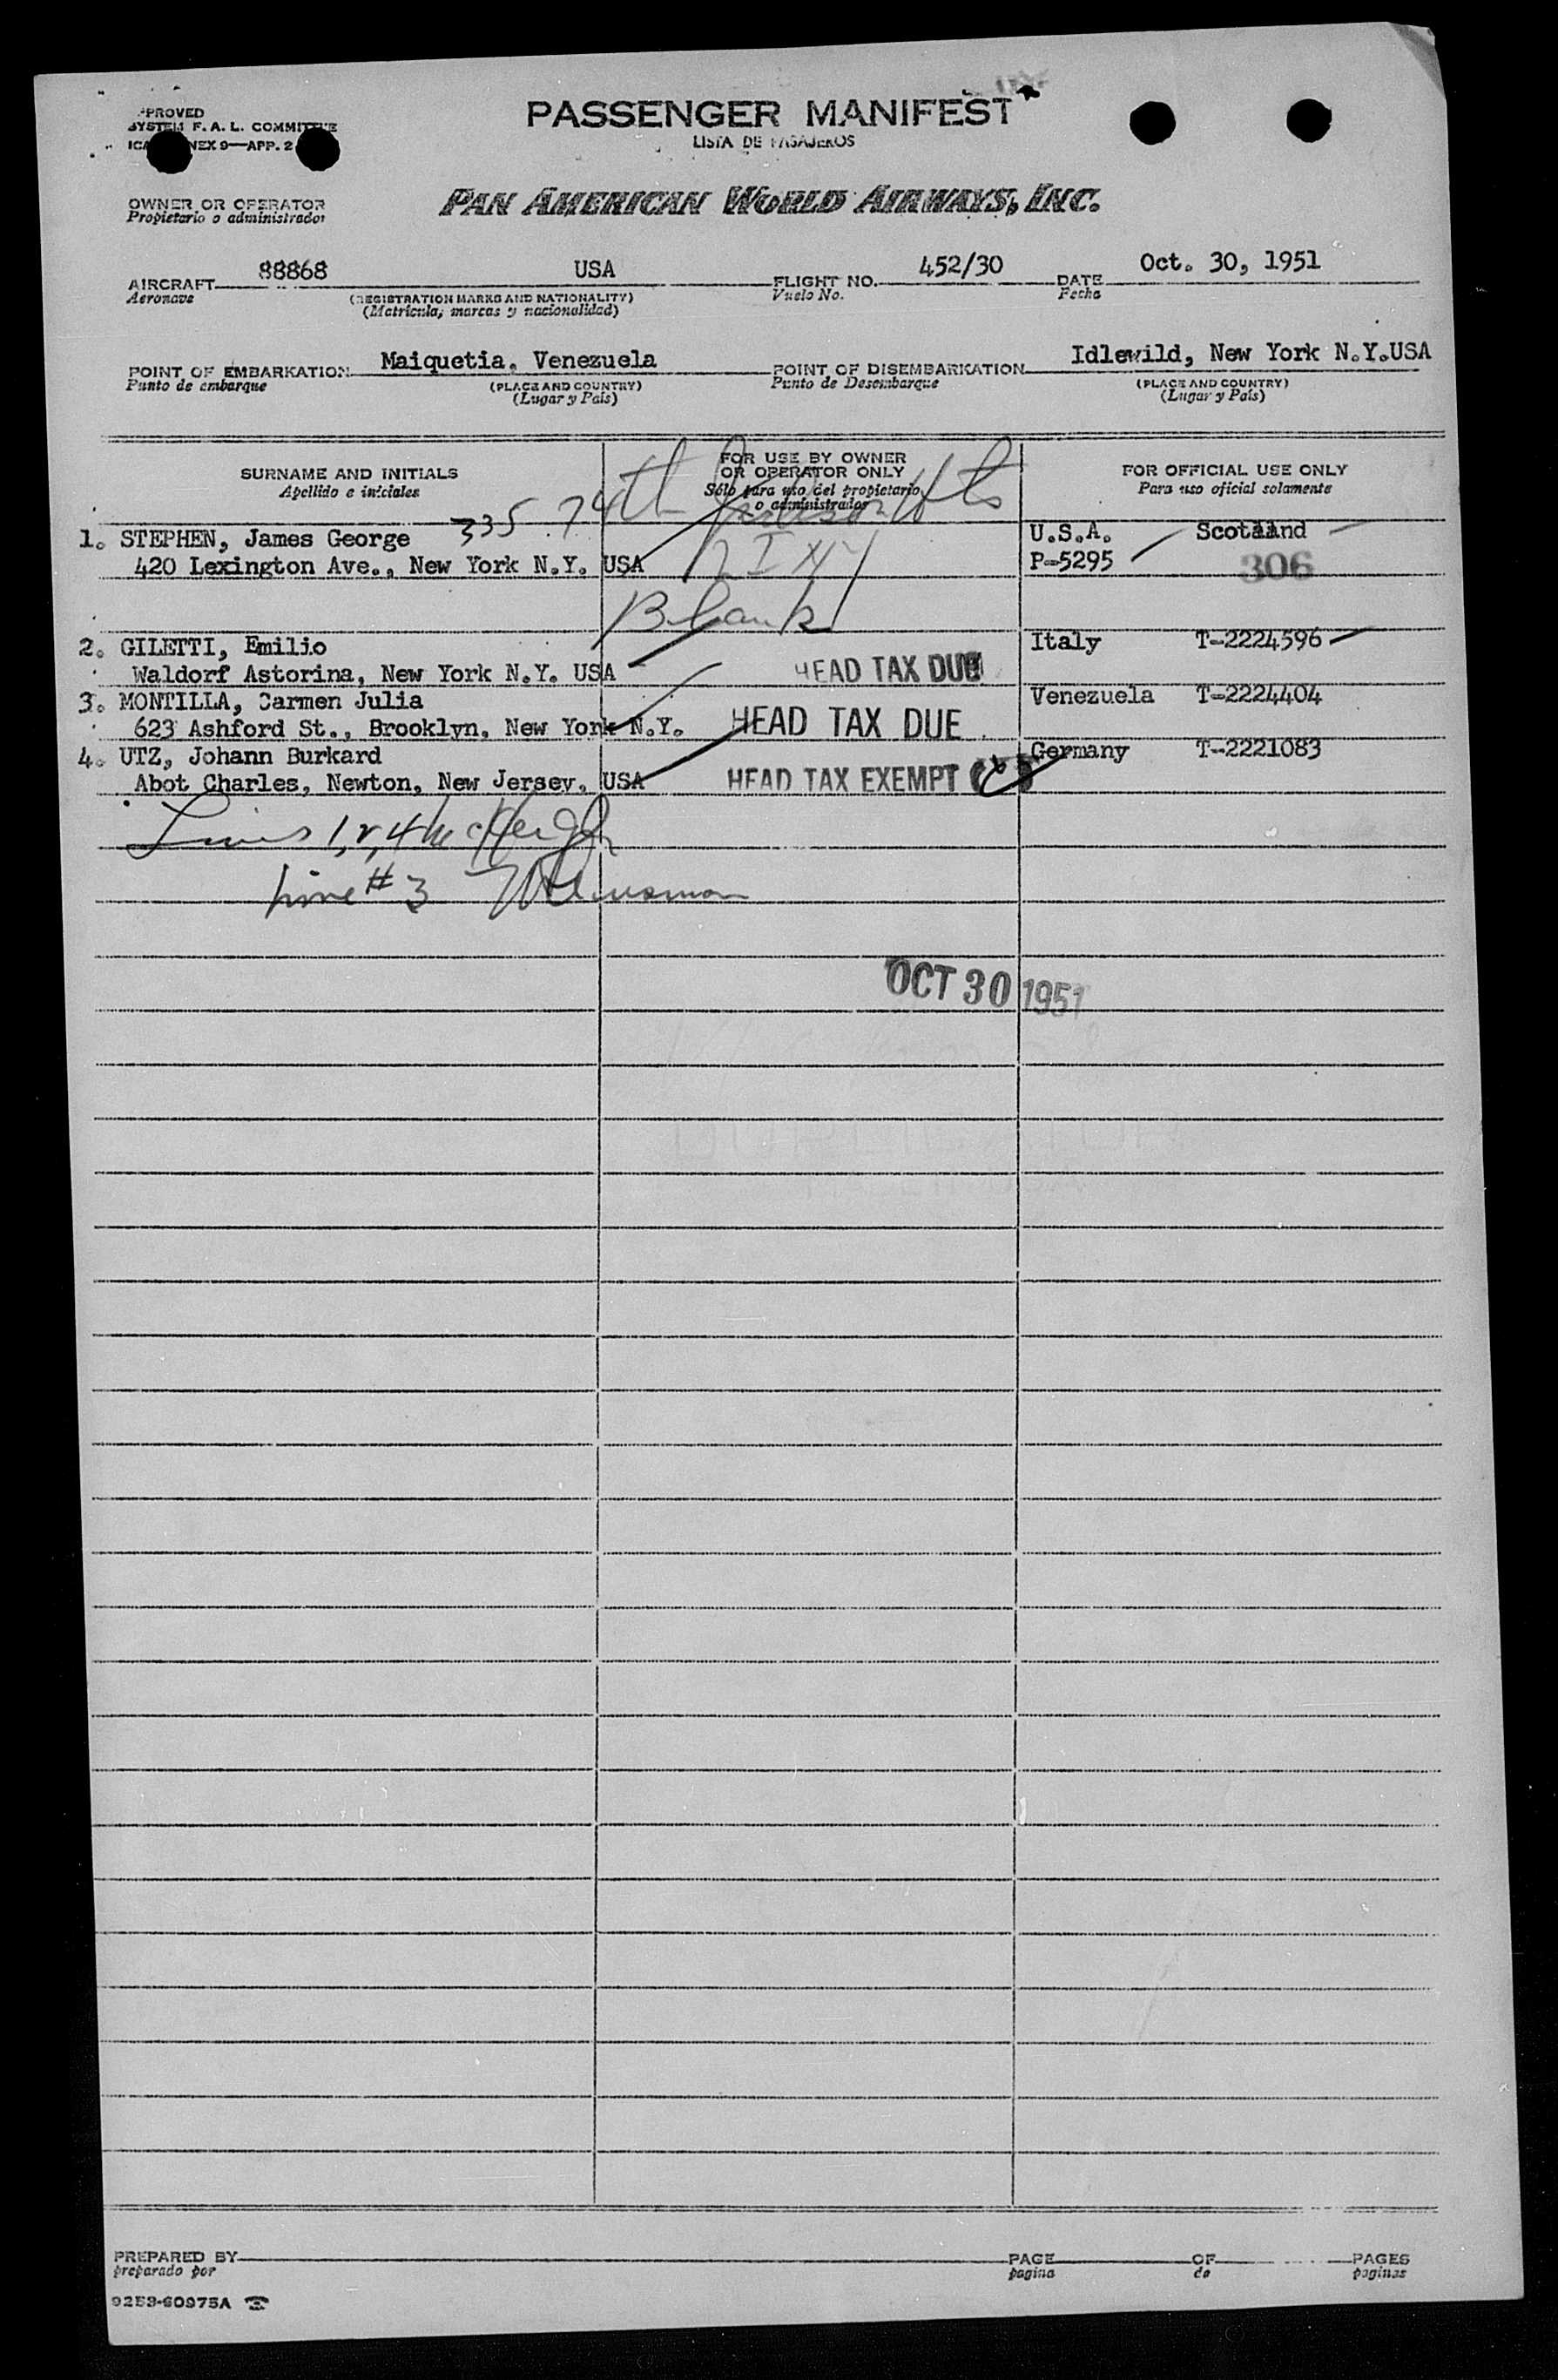 PASSENGER MANIFEST
LISTA DE PASAJEROS
PROVED
SYSTEM F. A. L. COMMITTEE
NEX 9—APP. 2
OWNER OR OPERATOR
Propietario o administrador
PAN AMERICAN WORLD AIRWAYS, INC.
AIRCRAFT 88868 USA FLIGHT NO. 452/30 DATE Oct. 30, 1951
Aeronave (REGISTRATION MARKS AND NATIONALITY) Vuelo No. Fecha
(Matrícula, marcas y nacionalidad)
POINT OF EMBARKATION Maiquetia, Venezuela POINT OF DISEMBARKATION Idlewild, New York N.Y.USA
Punto de embarque (PLACE AND COUNTRY) Punto de Desembarque (PLACE AND COUNTRY)
(Lugar y País) (Lugar y País)
SURNAME AND INITIALS
Apellido e iniciales
FOR USE BY OWNER
OR OPERATOR ONLY
Sólo para uso del propietario
o administrador
FOR OFFICIAL USE ONLY
Para uso oficial solamente
335 74th Jackson Hts
1. STEPHEN, James George U.S.A. Scotland
420 Lexington Ave., New York N.Y. USA P-5295 306
Blank
2. GILETTI, Emilio Italy T-2224596
Waldorf Astorina, New York N.Y. USA HEAD TAX DUE
3. MONTILLA, Carmen Julia Venezuela T-2224404
623 Ashford St., Brooklyn, New York N.Y. HEAD TAX DUE
4. UTZ, Johann Burkard Germany T-2221083
Abot Charles, Newton, New Jersey, USA HEAD TAX EXEMPT
Lines 1, 2, 4
Line # 3
OCT 30 1951
PREPARED BY PAGE OF PAGES
preparado por pagina de paginas
9253-60975A